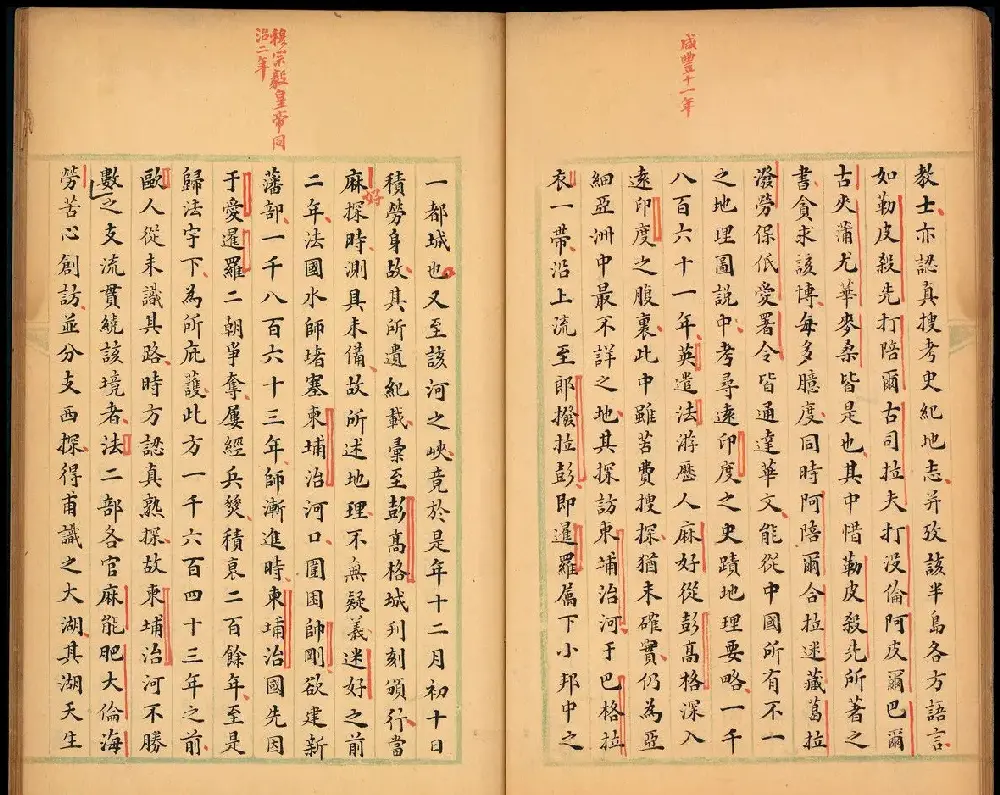 咸豐十一年
教士亦認真搜考史紀地志并攷該半島各方語言
如勒皮殺先打陪爾古司拉夫打没倫阿皮爾巴爾
古夾蒲尤華麥桑皆是也其中惜勒皮殺先所著之
書貪求該博每多臆度同時阿陪爾合拉迷藏葛拉
潑勞保低愛署令皆通達華文能從中國所有不一
之地理圖説中考尋遠印度之史蹟地理要略一千
八百六十一年英遣法游歷人麻好從彭髙格深入
遠印度之腹裏此中雖苦費搜探猶未確實仍為亞
細亞洲中最不詳之地其探訪柬埔治河于巴格拉
衣一帶沿上流至郎撥拉彭即暹羅屬下小邦中之
穆宗毅皇帝同
治二年
一都城也又至該河之峽竟於是年十二月初十日
積勞身故其所遺紀載彙至彭髙格城刋刻頒行當
麻探時測具未備故所述地理不無疑義迷好之前
二年法國水師堵塞柬埔治河口圍困帥剛欲建新
藩部一千八百六十三年師漸進時柬埔治國先因
于愛暹羅二朝爭奪屢經兵燹積衰二百餘年至是
歸法宇下為所庇護此方一千六百四十三年之前
歐人從未識其路時方認真熟探故柬埔治河不勝
數之支流貫繞該境者法二部各官麻能肥大倫海
勞苦心創訪並分支西探得甫識之大湖其湖天生
好